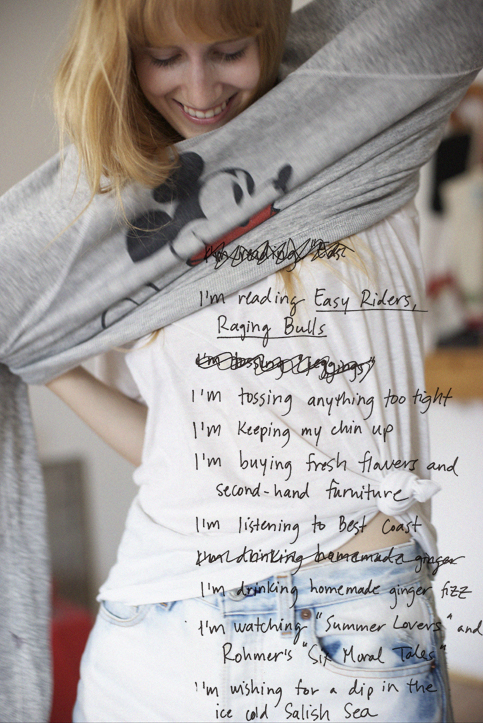 I'm reading "Eas
I'm reading Easy Riders,
Raging Bulls
I'm tossing "jeggings"
I'm tossing anything too tight
I'm keeping my chin up
I'm buying fresh flowers and
second-hand furniture
I'm listening to Best Coast
I'm drinking homemade ginger
I'm drinking homemade ginger fizz
I'm watching "Summer Lovers" and
Rohmer's "Six Moral Tales"
I'm wishing for a dip in the
ice cold Salish Sea